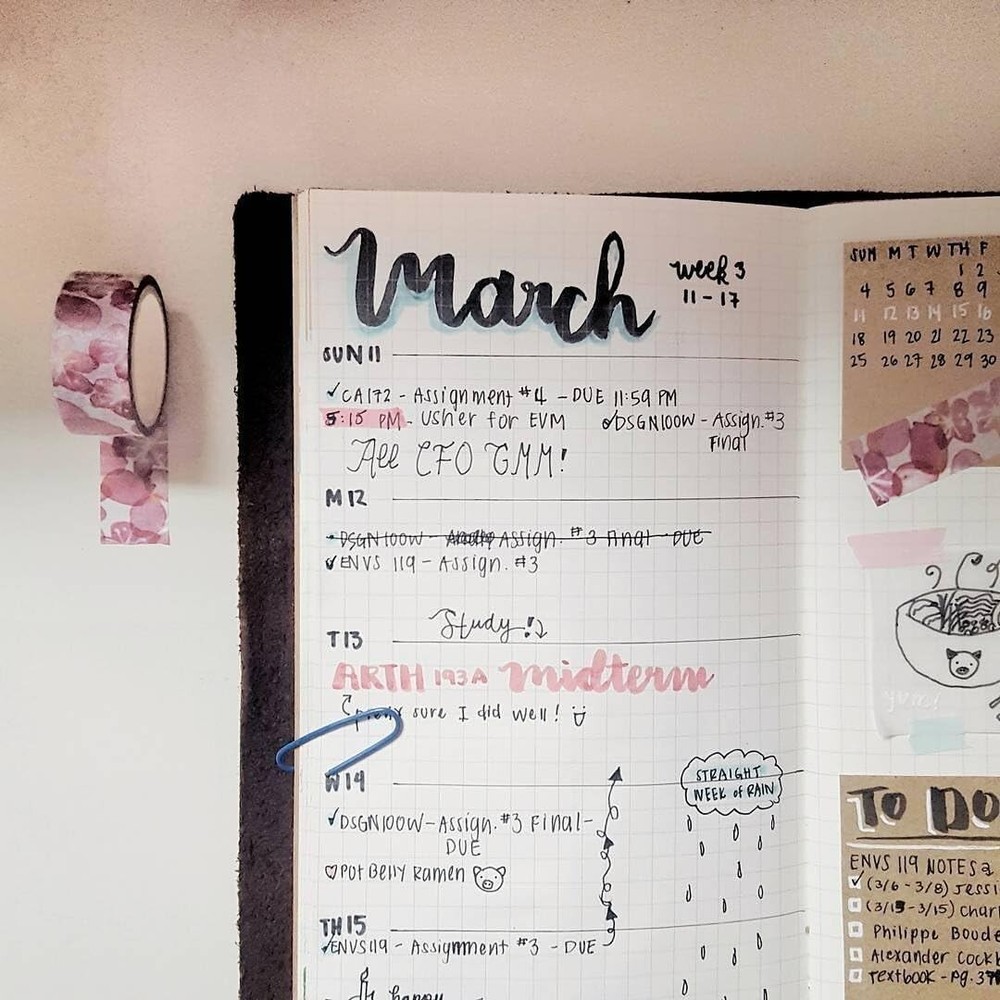 March
week 3
11-17
SUN 11
✓CA172 - Assignment #4 - DUE 11:59 PM
5:15 PM - Usher for EVM
✓DSGN100W - Assign. #3
Final
All CFO GMM!
M 12
• DSGN100W - Assign. #3 Final - DUE
✓ENVS 119 - Assign. #3
Study!
T 13
ARTH 193A midterm
sure I did well!
W 14
STRAIGHT
WEEK of RAIN
✓DSGN100W - Assign. #3 Final -
DUE
♡Pot Belly Ramen
TH 15
✓ENVS119 - Assignment #3 - DUE
happy
SUN M T W TH F
1 2
4 5 6 7 8 9
11 12 13 14 15 16
18 19 20 21 22 23
25 26 27 28 29 30
yum!
TO DO
ENVS 119 NOTES
(3/6 - 3/8) Jessi
(3/13 - 3/15) Char
Philippe Boude
Alexander Cock
Textbook - pg. 37